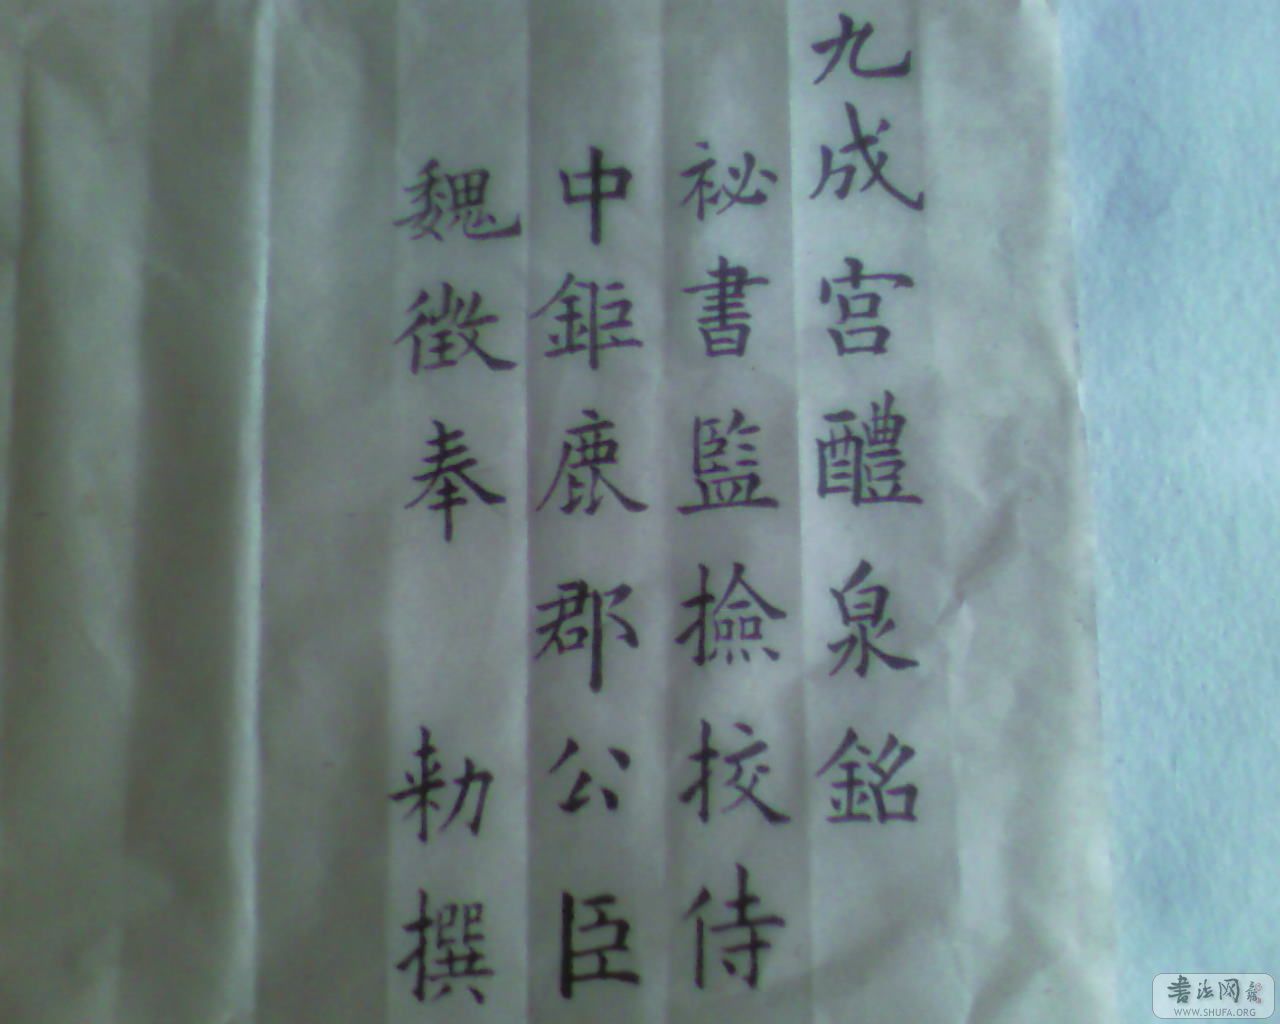 九成宮醴泉銘
祕書監撿挍侍
中鉅鹿郡公臣
魏徵奉 勑撰
书法网
WWW.SHUFA.ORG